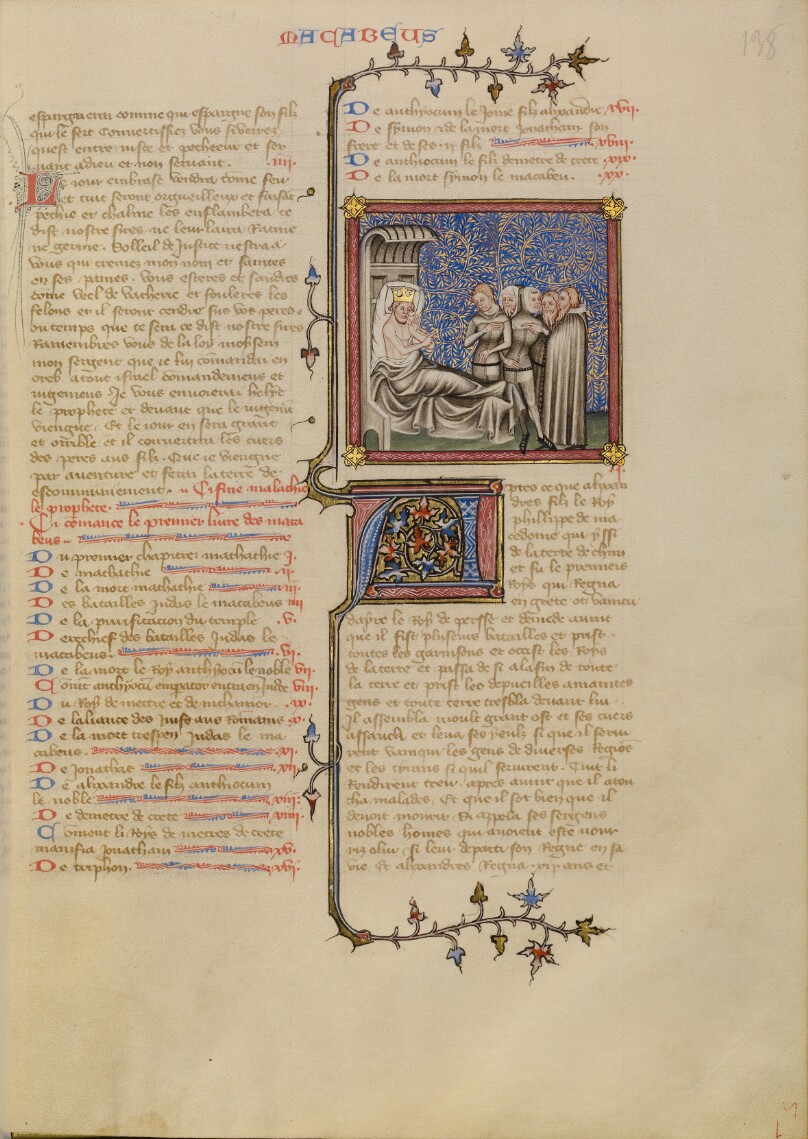 MACABEUS
138
espargnerai comme qui espargne son filz
qui le sert Convertissiez vous si verrez
quest entre juste et pecheeur et ser
vant a dieu et non servant . .IIII.
Le jour embrase vendra come feu
et tuit seront orgueilleux et
pechie et les enflambera ce
dist nostre sires ne leur laira Racine
ne germe . Solleil de justice nestra a
vous qui cremez mon nom et saintes
en ses pannes . vous esteres et saudrez
come veel de vacherie et fouleres les
felons et il seront cendre sus vos piez
ou temps que ce sera ce dist nostre sires
Ramembrez vous de la loy moysem
mon sergent que je lui comandai en
oreb a tout israel comandemens et
jugemens Je vous envoierai helye
le prophete et devant que le jugement
viengne . Et le jour en sera grant
et orrible et il convertira les cuers
des peres aus filz . Que je viengne
par aventure et ferai la terre de
escommuniement . Ci fine malachie
le prophete .
Ci comance le premier livre des maca
beus .
Du premier chapitre mathathie I.
De mathathie .II.
De la mort mathathie III.
Des batailles Judas le macabeus IIII
De la purification du temple .V.
Derechief des batailles Judas le
macabeus . .VI.
De la mort le Roy anthyocum le noble VII.
Comt anthyocum empator entra en Jude VIII.
Du Roy demetre et de nichanor . .IX.
De laliance des Juifs aus Romains .X.
De la mort Judas le ma
cabeus . .XI.
De Jonathas XII.
De alixandre le filz anthiocum
le noble XIII.
De demetre de crete XIIII.
Coment li Roys demetres de crete
manifia Jonatham XV.
De triphon . XVI.
De anthyocum le jone filz alixandre XVII.
De symon et de la mort Jonatham son
frere et de ses .II. filz XVIII.
De anthiocum le filz demetre de crete .XIX.
De la mort symon le macabeu . .XX.
I.
Apres ce que alixan
dres filz le Roy
phillippe de ma
cedoine qui yssi
de la terre de
et fu le premiers
Roys qui Regna
en grece ot vaincu
dayre le Roy de persse et de mede avant
que il fist plusieurs batailles et prist
toutes les garnisons et occist les Roys
de la terre et passa de si a la fin de toute
la terre et prist les depueilles
gens et toute terre trembla devant lui .
Il assembla moult grant ost et ses cuers
essauca et leva ses peulz si que il
vaincu les gens de diverses Regions
et les tyrans si quil servirent . Tuit li
Rendirent treu . apres avint que il
cha malades . Et que il sot bien que il
devoit mourir . Si appela ses sergens
nobles homes qui avoient este nour
riz o lui . si leur departi son Regne en sa
vie . Et alixandres Regna .XII. ans et